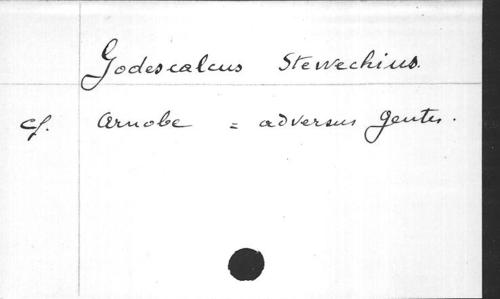 Godescalcus Stewechius.
cf. Arnobe = adversus gentes.